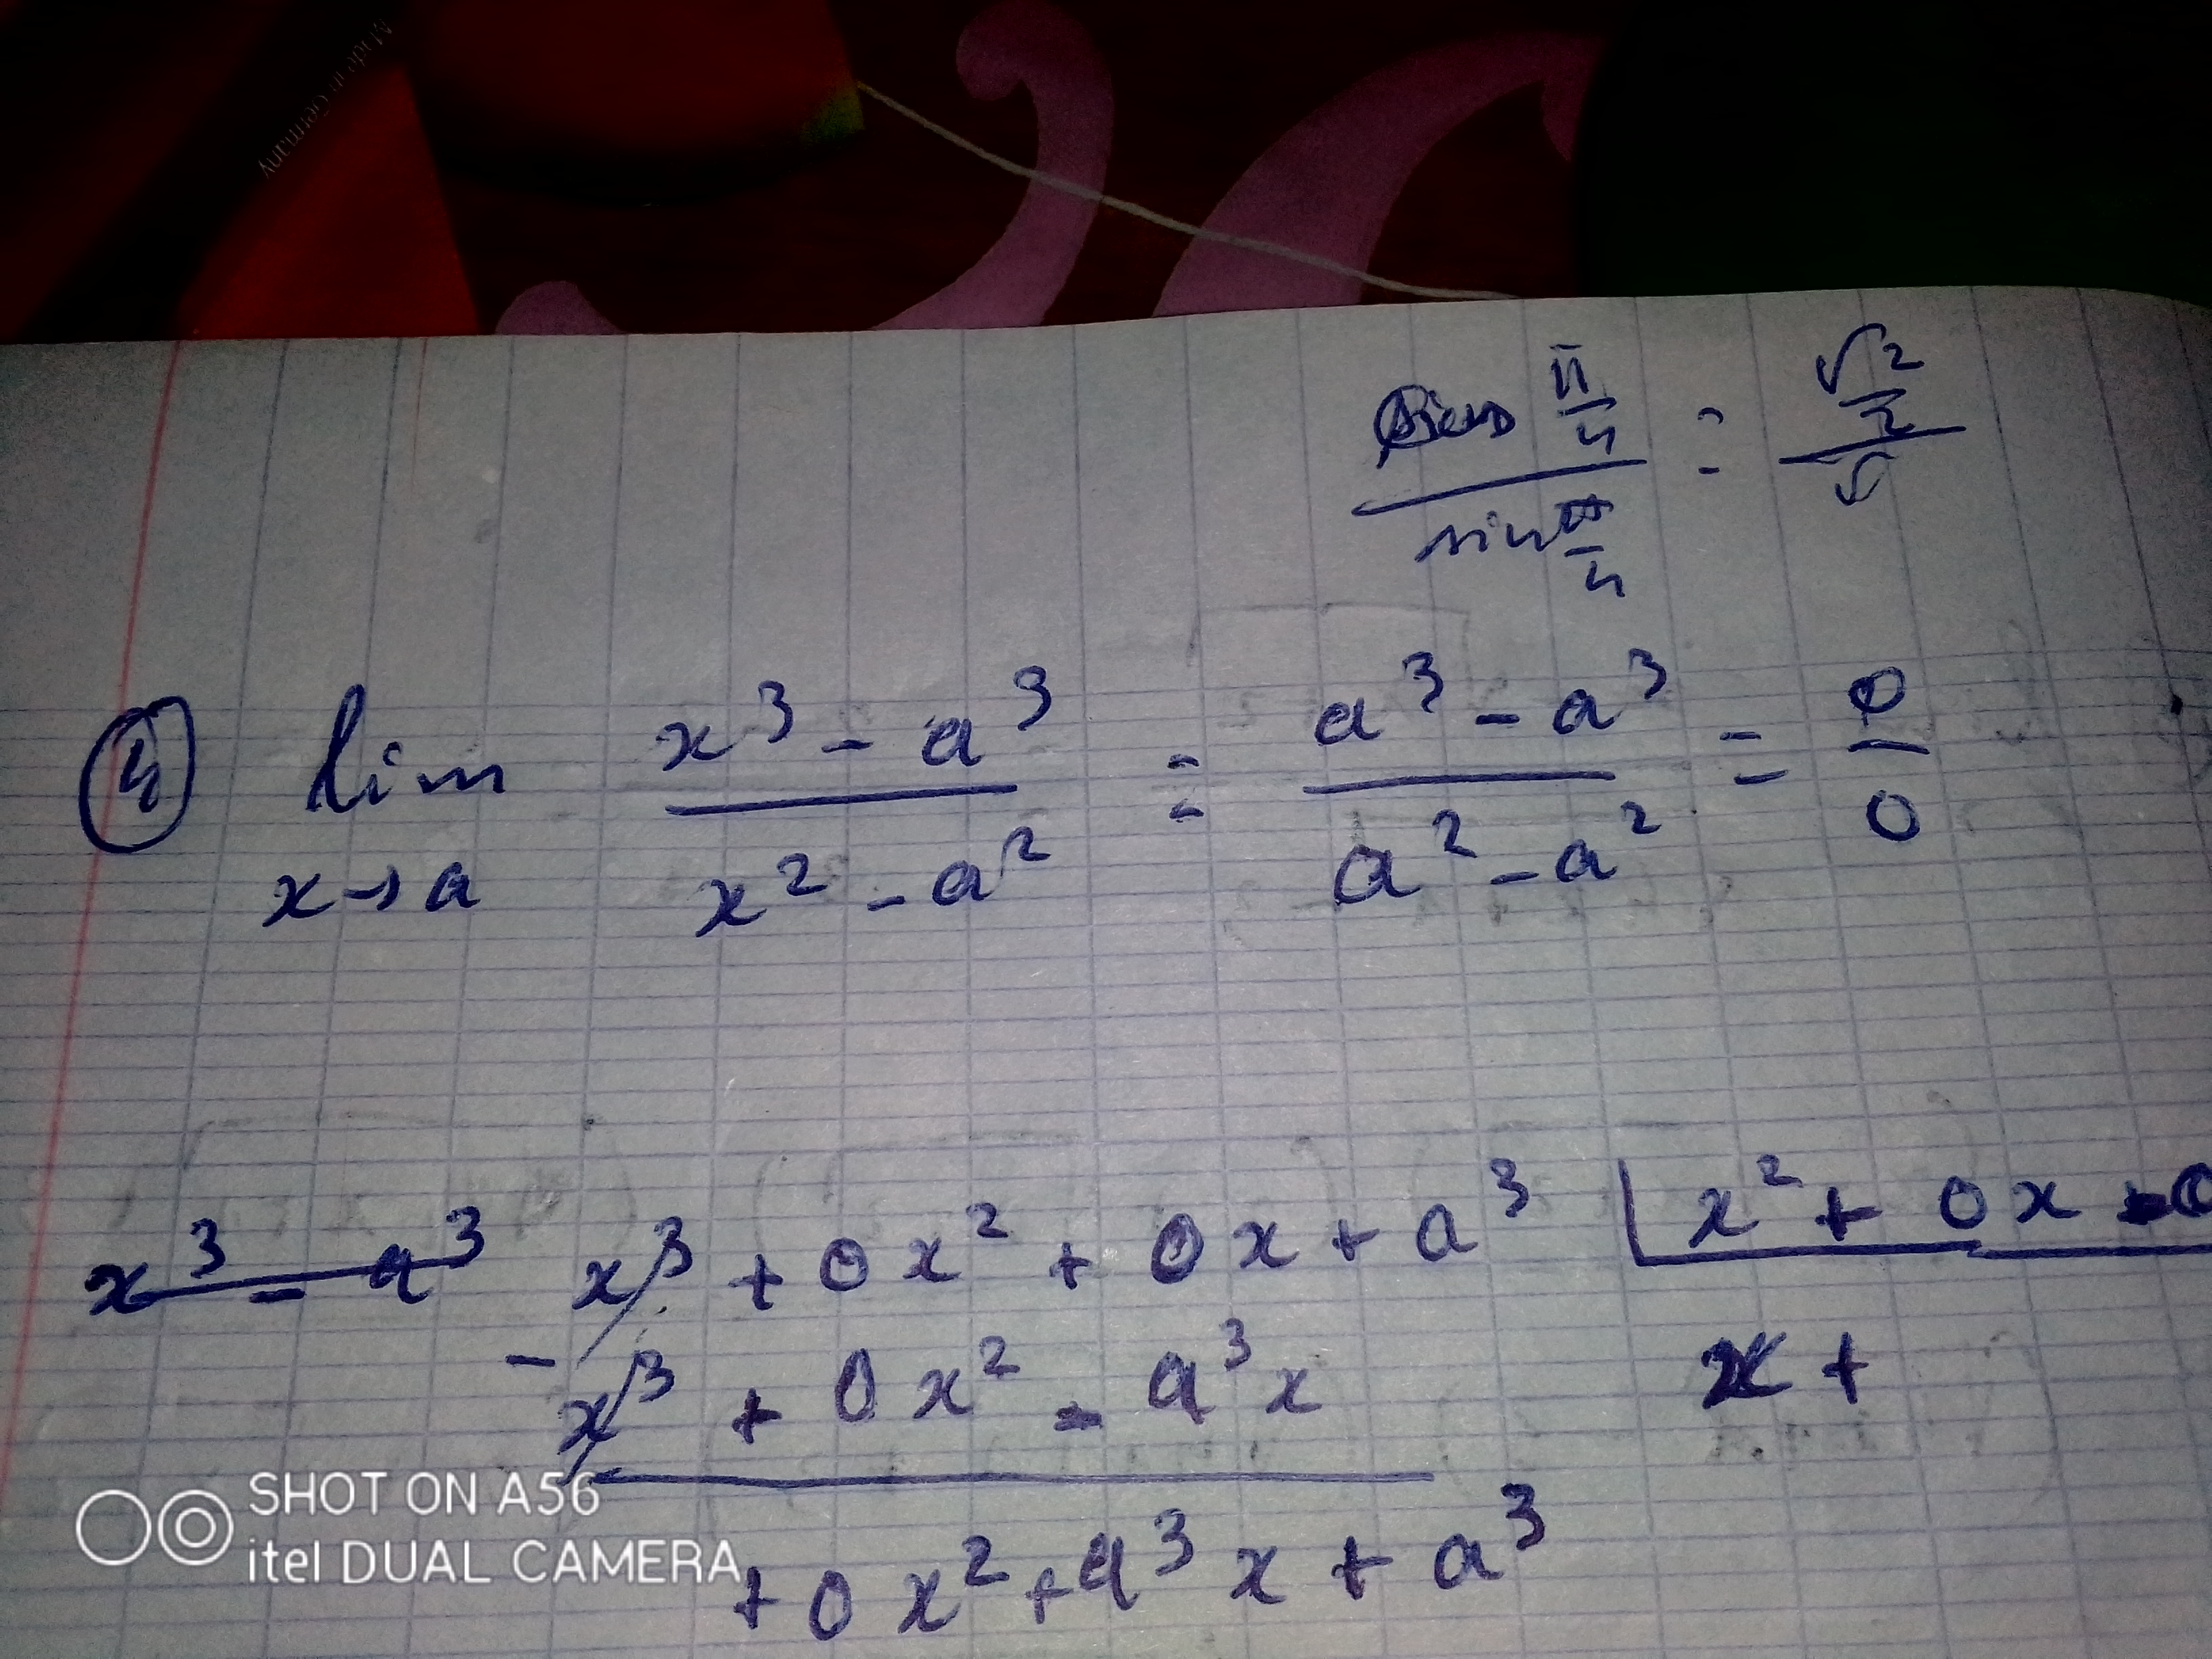 Made in Germany
sin π/4 / sin π/4 = √2/2 / √
④ lim x→a x³ - a³ / x² - a² = a³ - a³ / a² - a² = 0/0
x³ - a³ x³ + 0x² + 0x + a³ | x² + 0x -
- x³ + 0x² - a³x x +
+ 0x² + a³x + a³
SHOT ON A56
itel DUAL CAMERA